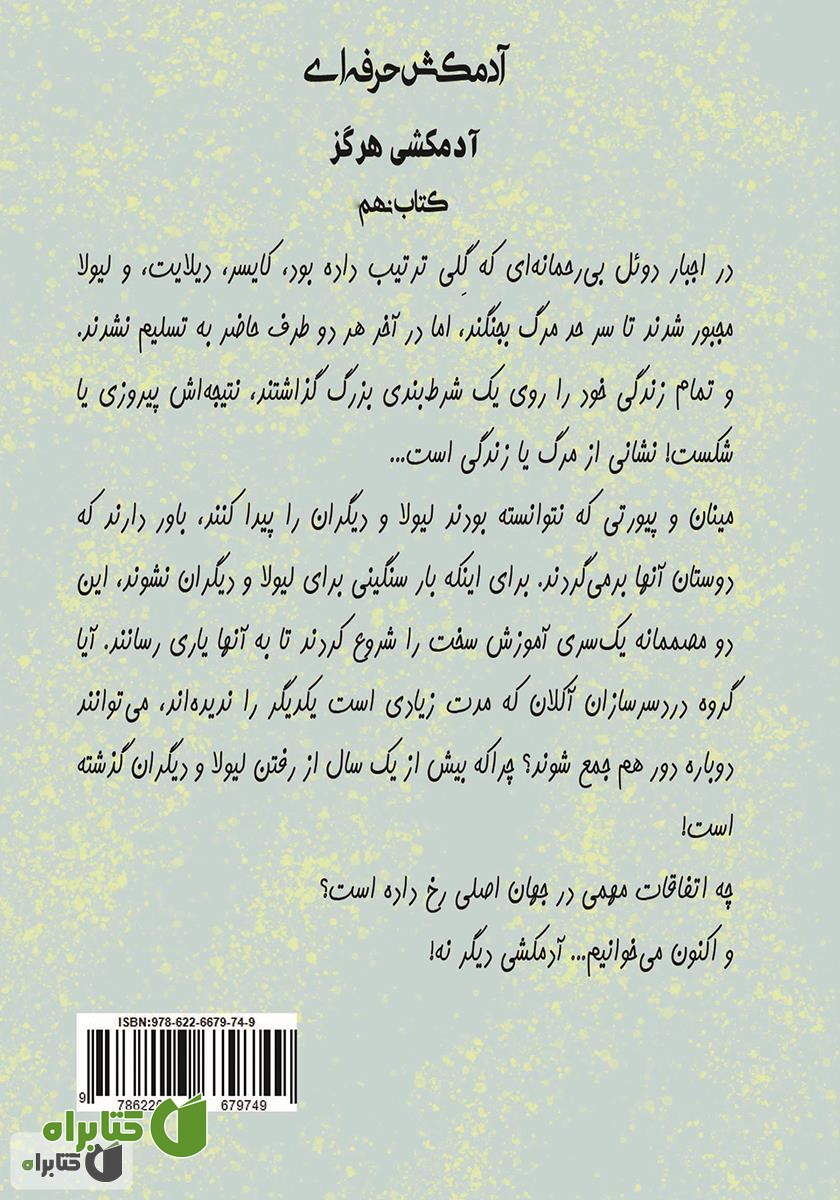 آدمکش حرفه‌ای
آدمکشی هرگز
کتاب نهم
در اجبار دوئل بی‌رحمانه‌ای که گِلی ترتیب داده بود، کایسر، دیلایت، و لیولا
مجبور شدند تا سر حد مرگ بجنگند، اما در آخر هر دو طرف حاضر به تسلیم نشدند.
و تمام زندگی خود را روی یک شرط‌بندی بزرگ گذاشتند، نتیجه‌اش پیروزی یا
شکست! نشانی از مرگ یا زندگی است...
مینان و پیورتی که نتوانسته بودند لیولا و دیگران را پیدا کنند، باور دارند که
دوستان آنها برمی‌گردند. برای اینکه بار سنگینی برای لیولا و دیگران نشوند، این
دو مصممانه یک‌سری آموزش سخت را شروع کردند تا به آنها یاری رسانند. آیا
گروه دردسرسازان آکلان که مدت زیادی است یکدیگر را ندیده‌اند، می‌توانند
دوباره دور هم جمع شوند؟ چراکه بیش از یک سال از رفتن لیولا و دیگران گذشته
است!
چه اتفاقات مهمی در جهان اصلی رخ داده است؟
و اکنون می‌خوانیم... آدمکشی دیگر نه!
ISBN:978-622-6679-74-9
9 78622 679749
کتابراه
کتابراه